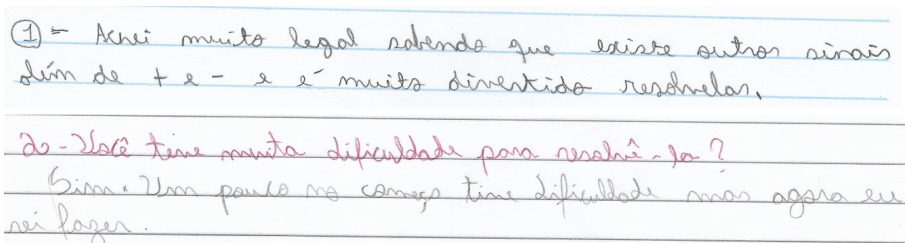 ① - Achei muito legal sabendo que existe outros sinais
além de + e - e é muito divertido resolvelas.
2º - Você teve muita dificuldade para resolvê-la?
Sim. Um pouco no começo tive dificuldade mas agora eu
sei fazer.